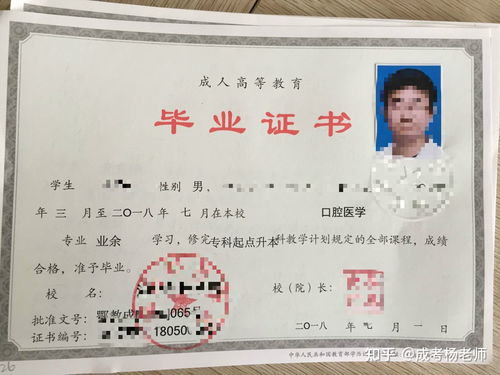 成人高等教育
毕业证书
学生 性别 男，
年 三 月至二〇一八年 七 月在本校 口腔医学
专业 业余 学习，修完专科起点升本科教学计划规定的全部课程，成绩
合格，准予毕业。
校 名： 校（院）长：
批准文号：鄂教成 065号
证书编号： 18050
二〇一八 年 七 月 一 日
中华人民共和国教育部学历
知乎 @成考杨老师
26